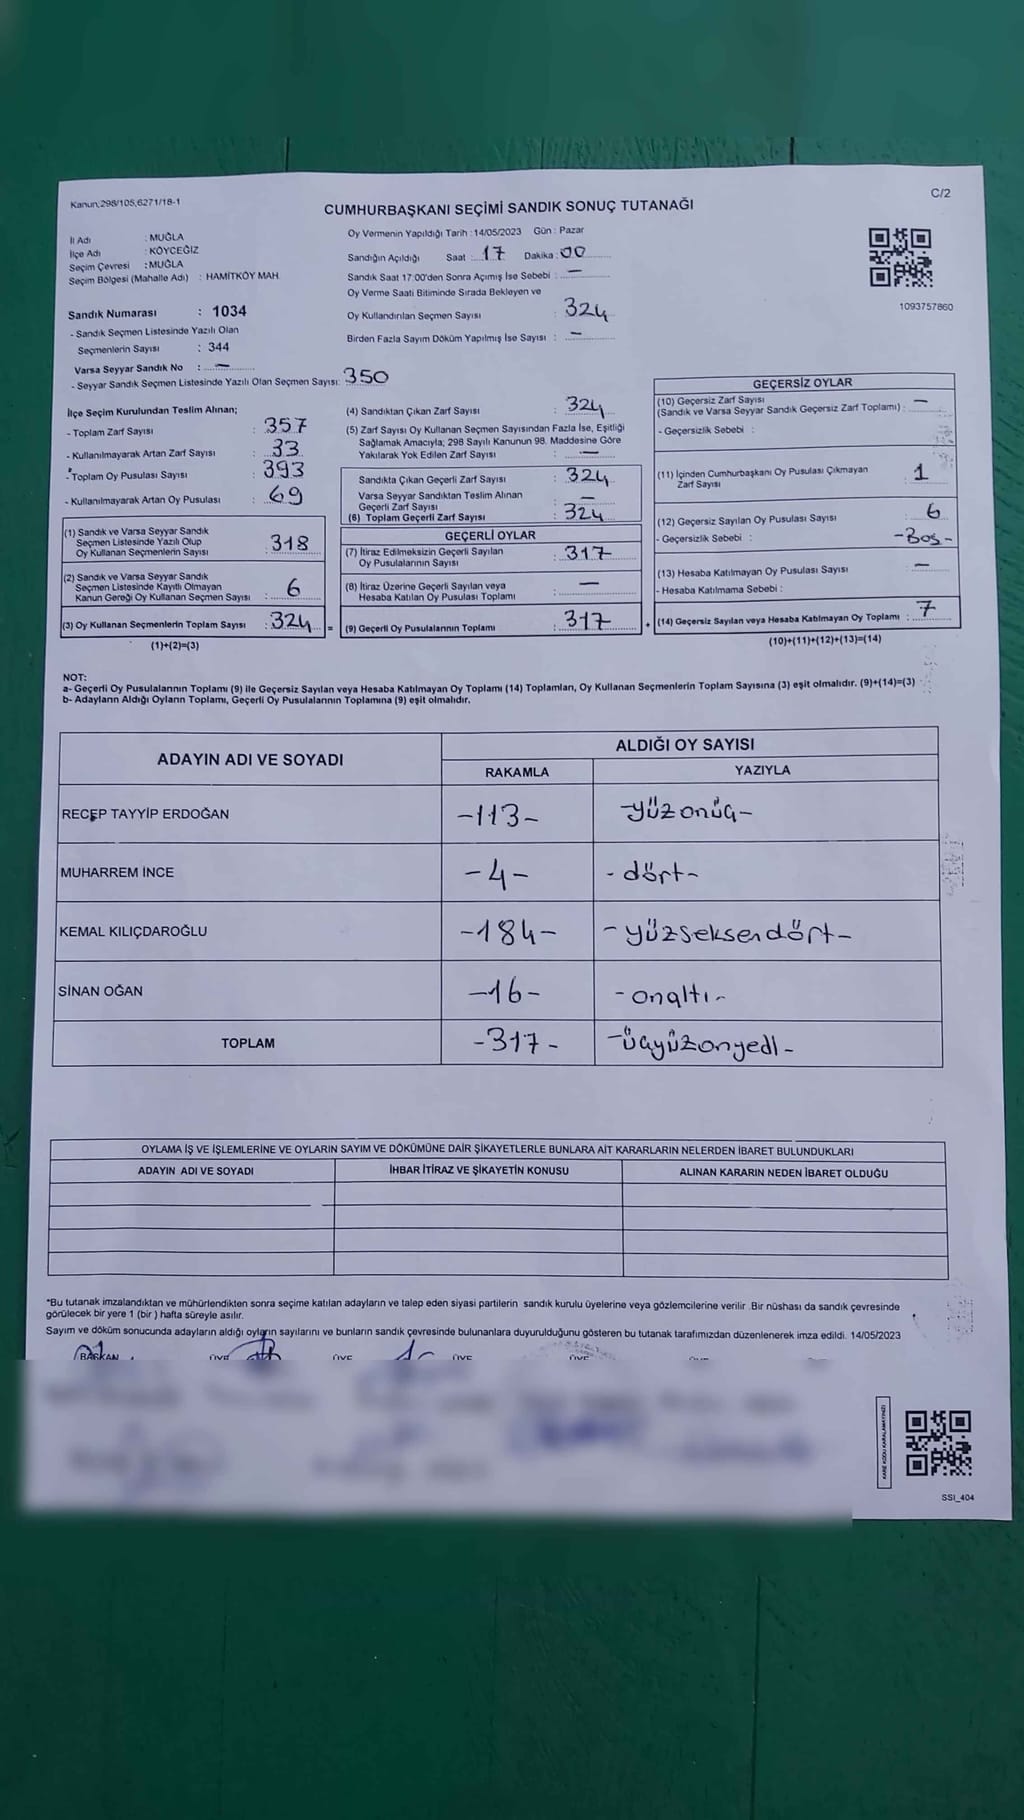 Kanun;298/105,6271/18-1
C/2
CUMHURBAŞKANI SEÇİMİ SANDIK SONUÇ TUTANAĞI
İl Adı : MUĞLA
İlçe Adı : KÖYCEĞİZ
Seçim Çevresi : MUĞLA
Seçim Bölgesi (Mahalle Adı) : HAMİTKÖY MAH.
Sandık Numarası : 1034
- Sandık Seçmen Listesinde Yazılı Olan
Seçmenlerin Sayısı : 344
Varsa Seyyar Sandık No : —
- Seyyar Sandık Seçmen Listesinde Yazılı Olan Seçmen Sayısı: 350
Oy Vermenin Yapıldığı Tarih : 14/05/2023 Gün : Pazar
Sandığın Açıldığı Saat : 17 Dakika : 00
Sandık Saat 17:00'den Sonra Açımış İse Sebebi : —
Oy Verme Saati Bitiminde Sırada Bekleyen ve
Oy Kullandırılan Seçmen Sayısı : 324
Birden Fazla Sayım Döküm Yapılmış İse Sayısı : —
1093757860
İlçe Seçim Kurulundan Teslim Alınan;
- Toplam Zarf Sayısı : 357
- Kullanılmayarak Artan Zarf Sayısı : 33
- Toplam Oy Pusulası Sayısı : 393
- Kullanılmayarak Artan Oy Pusulası : 69
(1) Sandık ve Varsa Seyyar Sandık
Seçmen Listesinde Yazılı Olup
Oy Kullanan Seçmenlerin Sayısı : 318
(2) Sandık ve Varsa Seyyar Sandık
Seçmen Listesinde Kayıtlı Olmayan
Kanun Gereği Oy Kullanan Seçmen Sayısı : 6
(3) Oy Kullanan Seçmenlerin Toplam Sayısı : 324 =
(1)+(2)=(3)
(4) Sandıktan Çıkan Zarf Sayısı : 324
(5) Zarf Sayısı Oy Kullanan Seçmen Sayısından Fazla İse, Eşitliği
Sağlamak Amacıyla; 298 Sayılı Kanunun 98. Maddesine Göre
Yakılarak Yok Edilen Zarf Sayısı : —
Sandıkta Çıkan Geçerli Zarf Sayısı : 324
Varsa Seyyar Sandıktan Teslim Alınan
Geçerli Zarf Sayısı : —
(6) Toplam Geçerli Zarf Sayısı : 324
GEÇERLİ OYLAR
(7) İtiraz Edilmeksizin Geçerli Sayılan
Oy Pusulalarının Sayısı : 317
(8) İtiraz Üzerine Geçerli Sayılan veya
Hesaba Katılan Oy Pusulası Toplamı : —
(9) Geçerli Oy Pusulalarının Toplamı : 317 +
GEÇERSİZ OYLAR
(10) Geçersiz Zarf Sayısı
(Sandık ve Varsa Seyyar Sandık Geçersiz Zarf Toplamı) : —
- Geçersizlik Sebebi :
(11) İçinden Cumhurbaşkanı Oy Pusulası Çıkmayan
Zarf Sayısı : 1
(12) Geçersiz Sayılan Oy Pusulası Sayısı : 6
- Geçersizlik Sebebi : -Boş-
(13) Hesaba Katılmayan Oy Pusulası Sayısı : —
- Hesaba Katılmama Sebebi :
(14) Geçersiz Sayılan veya Hesaba Katılmayan Oy Toplamı : 7
(10)+(11)+(12)+(13)=(14)
NOT:
a- Geçerli Oy Pusulalarının Toplamı (9) ile Geçersiz Sayılan veya Hesaba Katılmayan Oy Toplamı (14) Toplamları, Oy Kullanan Seçmenlerin Toplam Sayısına (3) eşit olmalıdır. (9)+(14)=(3)
b- Adayların Aldığı Oyların Toplamı, Geçerli Oy Pusulalarının Toplamına (9) eşit olmalıdır.
ADAYIN ADI VE SOYADI
ALDIĞI OY SAYISI
RAKAMLA YAZIYLA
RECEP TAYYİP ERDOĞAN -113- -yüzonüç-
MUHARREM İNCE -4- -dört-
KEMAL KILIÇDAROĞLU -184- -yüzseksendört-
SİNAN OĞAN -16- -onaltı-
TOPLAM -317- -üçyüzonyedi-
OYLAMA İŞ VE İŞLEMLERİNE VE OYLARIN SAYIM VE DÖKÜMÜNE DAİR ŞİKAYETLERLE BUNLARA AİT KARARLARIN NELERDEN İBARET BULUNDUKLARI
ADAYIN ADI VE SOYADI İHBAR İTİRAZ VE ŞİKAYETİN KONUSU ALINAN KARARIN NEDEN İBARET OLDUĞU
*Bu tutanak imzalandıktan ve mühürlendikten sonra seçime katılan adayların ve talep eden siyasi partilerin sandık kurulu üyelerine veya gözlemcilerine verilir .Bir nüshası da sandık çevresinde
görülecek bir yere 1 (bir ) hafta süreyle asılır.
Sayım ve döküm sonucunda adayların aldığı oyların sayılarını ve bunların sandık çevresinde bulunanlara duyurulduğunu gösteren bu tutanak tarafımızdan düzenlenerek imza edildi. 14/05/2023
BAŞKAN ÜYE ÜYE ÜYE ÜYE
KARE KODU KARALAMAYINIZ!
SSI_404